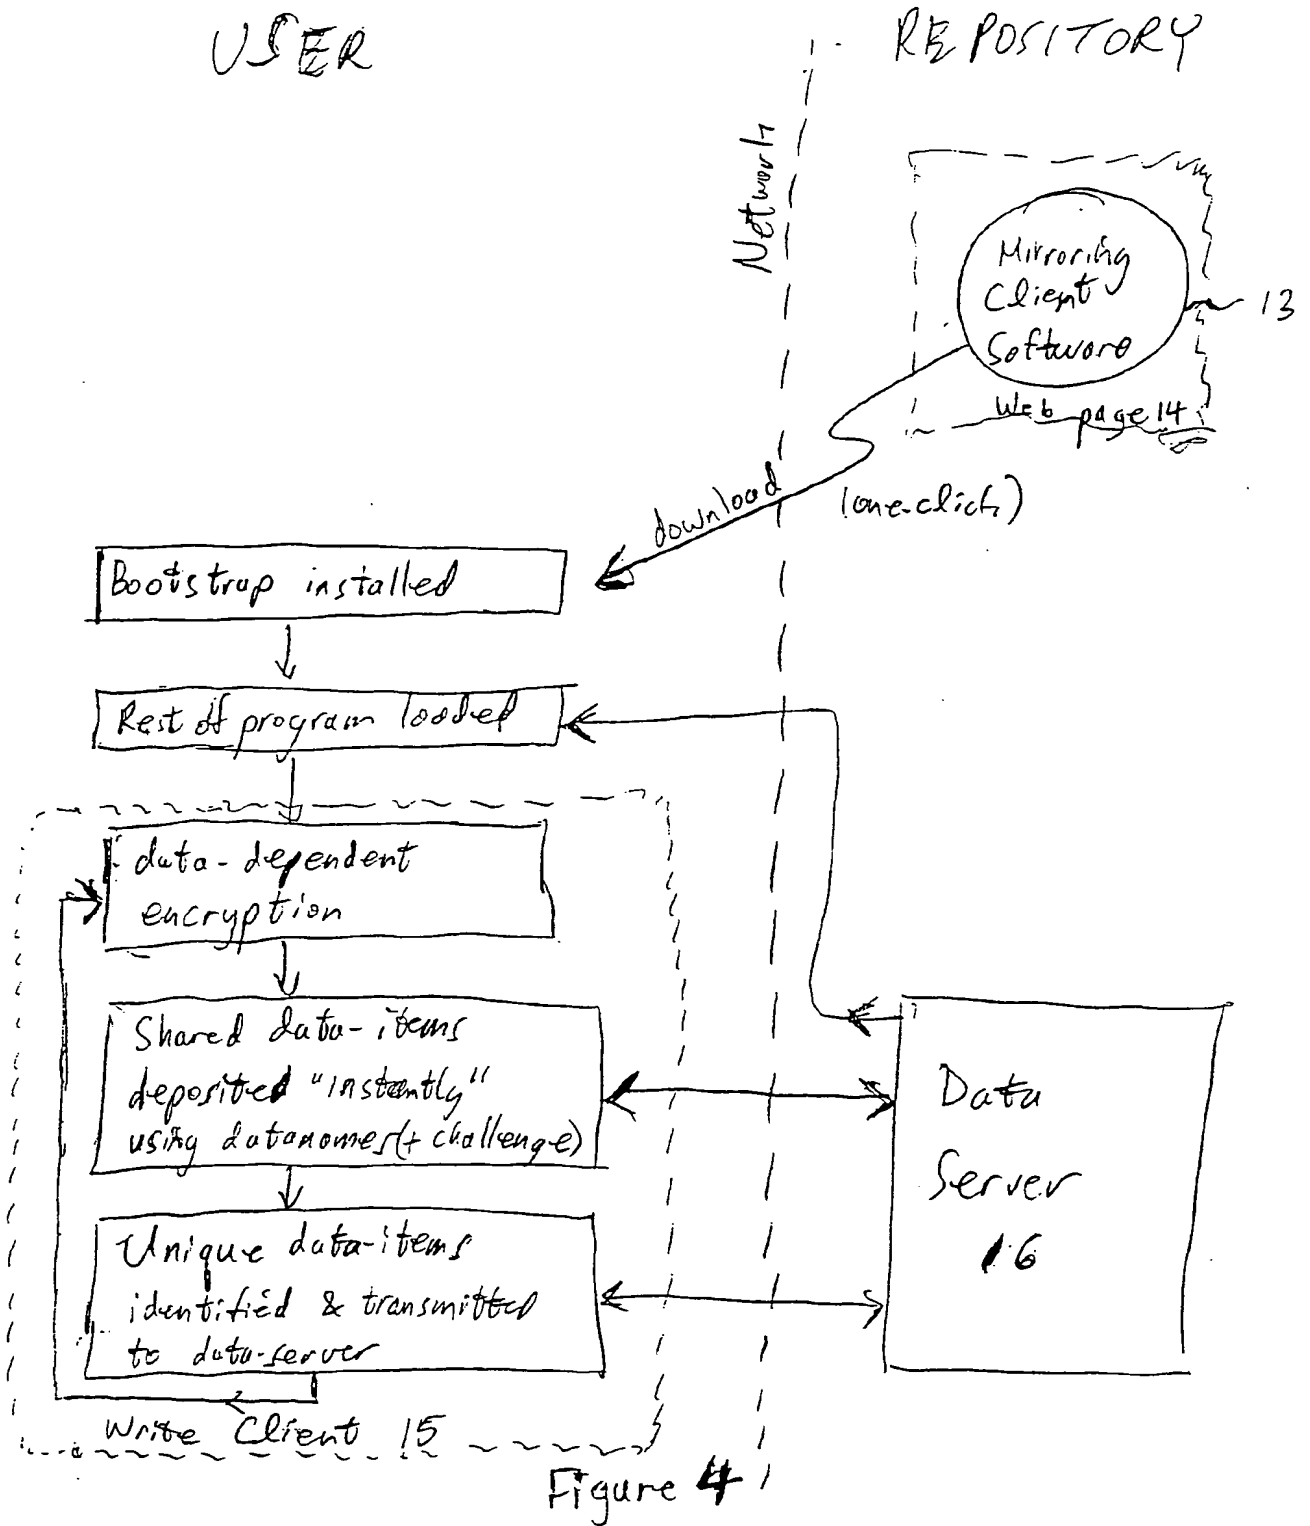 USER
REPOSITORY
Network
Mirroring
Client
Software
13
Web page 14
(one-click)
download
Bootstrap installed
Rest of program loaded
data-dependent
encryption
Shared data-items
deposited "instantly"
using datanames (+ challenge)
Unique data-items
identified & transmitted
to data-server
Write Client 15
Data
Server
16
Figure 4